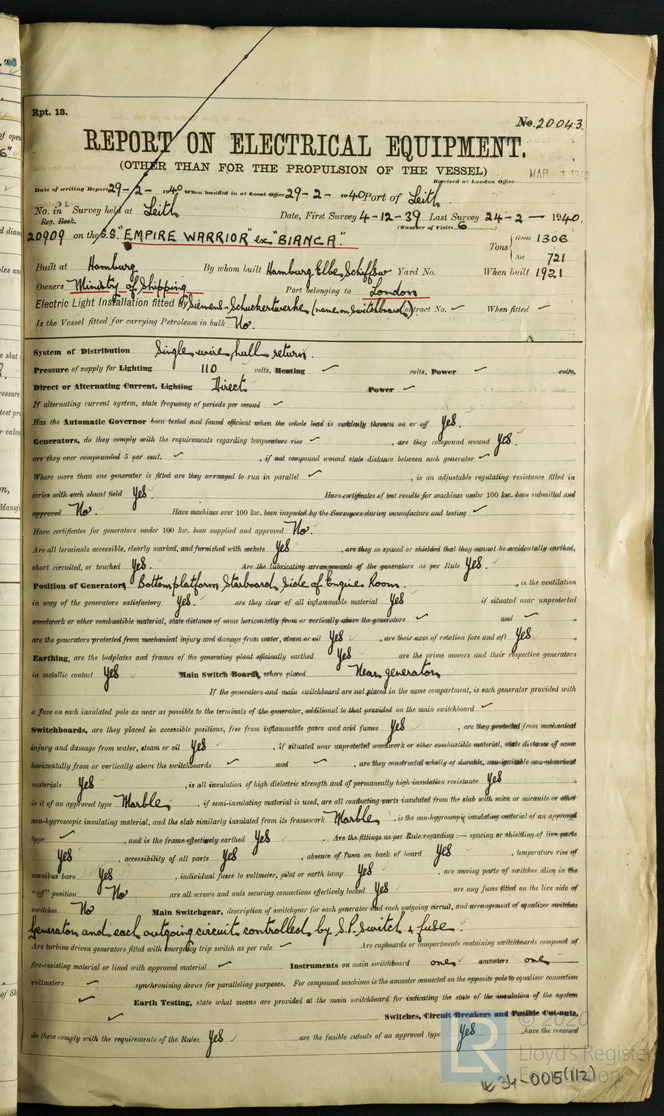 Rpt. 13.
No. 20043.
REPORT ON ELECTRICAL EQUIPMENT.
(OTHER THAN FOR THE PROPULSION OF THE VESSEL)
MAR
Received at London Office
Date of writing Report 29-2-1940 When handed in at Local Office 29-2-1940 Port of Leith
No. in Survey held at Leith Date, First Survey 4-12-39 Last Survey 24-2-1940.
Reg. Book. (Number of Visits 6
20909 on the S.S. "EMPIRE WARRIOR" ex "BIANCA." Tons { Gross 1306
Net 721
Built at Hamburg By whom built Hamburg, Elbe, Schiffsw Yard No. When built 1921
Owners Ministry of Shipping Port belonging to London
Electric Light Installation fitted by Siemens-Schuckertwerke (name on switchboard) Contract No. ✓ When fitted ✓
Is the Vessel fitted for carrying Petroleum in bulk No.
System of Distribution Single wire, hull return.
Pressure of supply for Lighting 110 volts, Heating ✓ volts, Power ✓ volts.
Direct or Alternating Current, Lighting Direct Power ✓
If alternating current system, state frequency of periods per second ✓
Has the Automatic Governor been tested and found efficient when the whole load is suddenly thrown on or off Yes.
Generators, do they comply with the requirements regarding temperature rise ✓, are they compound wound Yes.
are they over compounded 5 per cent. ✓, if not compound wound state distance between each generator ✓
Where more than one generator is fitted are they arranged to run in parallel ✓, is an adjustable regulating resistance fitted in
series with each shunt field Yes. Have certificates of test results for machines under 100 kw. been submitted and
approved No. Have machines over 100 kw. been inspected by the Surveyors during manufacture and testing ✓
Have certificates for generators under 100 kw. been supplied and approved No.
Are all terminals accessible, clearly marked, and furnished with sockets Yes, are they so spaced or shielded that they cannot be accidentally earthed,
short circuited, or touched Yes. Are the lubricating arrangements of the generators as per Rule Yes.
Position of Generators Bottom platform Starboard Side of Engine Room., is the ventilation
in way of the generators satisfactory Yes. are they clear of all inflammable material Yes if situated near unprotected
woodwork or other combustible material, state distance of same horizontally from or vertically above the generators ✓ and ✓,
are the generators protected from mechanical injury and damage from water, steam or oil Yes, are their axes of rotation fore and aft Yes.
Earthing, are the bedplates and frames of the generating plant efficiently earthed Yes are the prime movers and their respective generators
in metallic contact Yes Main Switch Boards, where placed Near generators
If the generators and main switchboard are not placed in the same compartment, is each generator provided with
a fuse on each insulated pole as near as possible to the terminals of the generator, additional to that provided on the main switchboard ✓
Switchboards, are they placed in accessible positions, free from inflammable gases and acid fumes Yes, are they protected from mechanical
injury and damage from water, steam or oil Yes, if situated near unprotected woodwork or other combustible material, state distance of same
horizontally from or vertically above the switchboards ✓ and ✓, are they constructed wholly of durable, non-ignitable non-absorbent
materials Yes, is all insulation of high dielectric strength and of permanently high insulation resistance Yes
is it of an approved type Marble, if semi-insulating material is used, are all conducting parts insulated from the slab with mica or micanite or other
non-hygroscopic insulating material, and the slab similarly insulated from its framework Marble, is the non-hygroscopic insulating material of an approved
type ✓, and is the frame effectively earthed Yes. Are the fittings as per Rule regarding:— spacing or shielding of live parts
Yes, accessibility of all parts Yes, absence of fuses on back of board Yes, temperature rise of
omnibus bars Yes, individual fuses to voltmeter, pilot or earth lamp Yes, are moving parts of switches alive in the
"off" position No are all screws and nuts securing connections effectively locked Yes are any fuses fitted on the live side of
switches No Main Switchgear, description of switchgear for each generator and each outgoing circuit, and arrangement of equaliser switches
Generators and each outgoing circuit controlled by S.P. switch & fuse.
Are turbine driven generators fitted with emergency trip switch as per rule ✓ Are cupboards or compartments containing switchboards composed of
fire-resisting material or lined with approved material ✓ Instruments on main switchboard one ammeters one
voltmeters ✓ synchronising device for paralleling purposes. For compound machines is the ammeter connected on the opposite pole to equaliser connection
✓ Earth Testing, state what means are provided at the main switchboard for indicating the state of the insulation of the system
✓ Switches, Circuit Breakers and Fusible Cut-outs,
do these comply with the requirements of the Rules Yes, are the fusible cutouts of an approved type Yes. have the reversed
© 2020
LR
Lloyd's Register
34-0015(112)